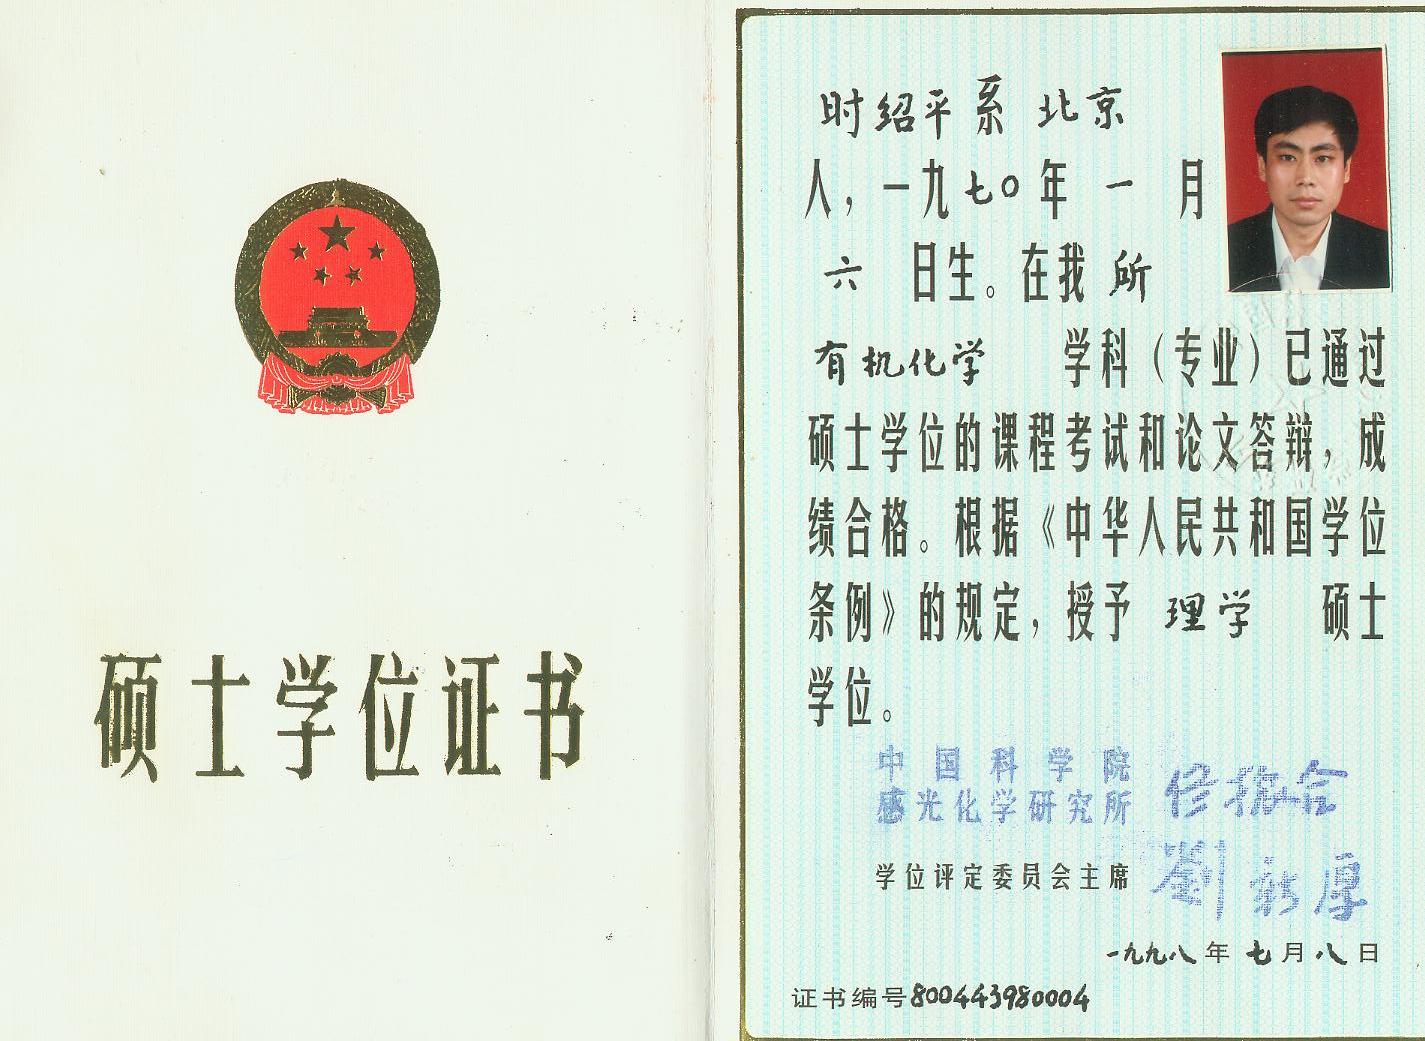 硕士学位证书
时绍平系 北京
人，一九七〇年 一 月
六 日生。在我 所
有机化学 学科（专业）已通过
硕士学位的课程考试和论文答辩，成
绩合格。根据《中华人民共和国学位
条例》的规定，授予 理学 硕士
学位。
中国科学院
感光化学研究所
学位评定委员会主席
刘新厚
一九九八年七月八日
证书编号800443980004